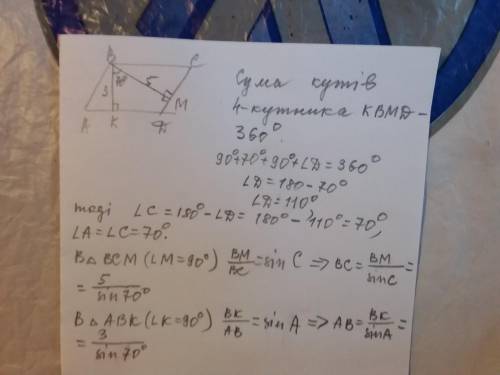 B
C
70°
5
3
M
A
K
D
Сума кутів
4-кутника KBMD –
360°.
90°+70°+90°+∠D=360°
∠D=180-70°
∠D=110°
тоді ∠C=180°-∠D= 180°-110°=70°,
∠A=∠C=70°.
В △ BCM (∠M=90°) BM/BC=sin C ⇒ BC= BM/sinC=
= 5/sin70°
В △ ABK (∠K=90°) BK/AB=sin A ⇒ AB= BK/sinA=
= 3/sin70°